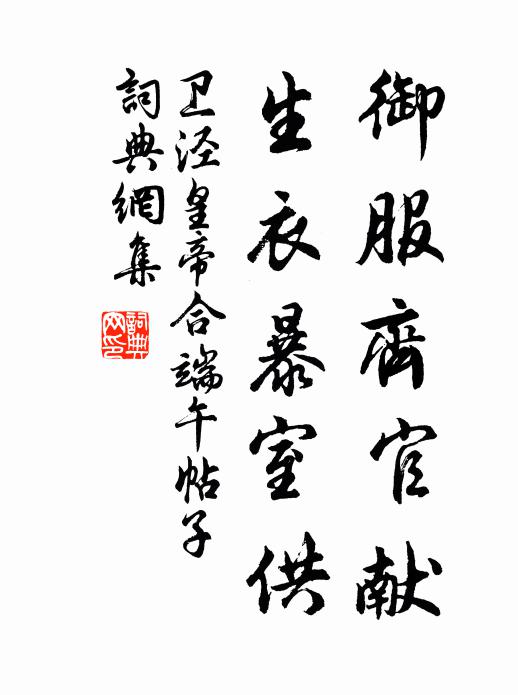 御服齊官献
生衣暴室供
卫泾皇帝合端午帖子
詞典網集
詞典网印